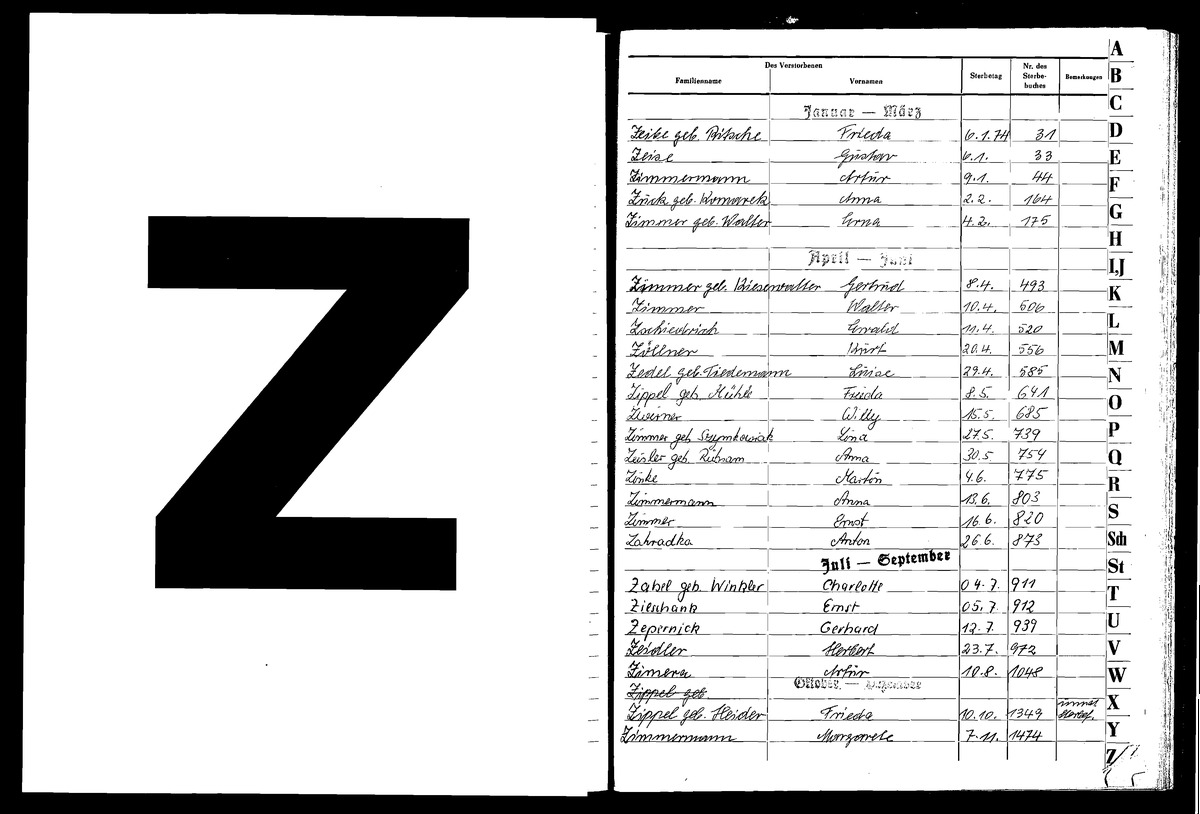 Z
Des Verstorbenen
Familienname Vornamen Sterbetag Nr. des Sterbe-buches Bemerkungen
Januar — März
Zeike geb. Nitsche Frieda 6.1.74 31
Zeise Gustav 6.1. 33
Zimmermann Artur 9.1. 44
Zück geb. Komarek Anna 2.2. 164
Zimmer geb. Walter Erna 4.2. 175
April — Juni
Zimmer geb. Kiesewalter Gertrud 8.4. 493
Zimmer Walter 10.4. 506
Zschiedrich Ewald 11.4. 520
Zöllner Kurt 20.4. 556
Zedel geb. Tiedemann Luise 29.4. 585
Zippel geb. Mühle Frieda 8.5. 641
Zwirner Willy 15.5. 685
Zimmer geb. Szymkowiak Lina 27.5. 739
Zeisler geb. Rühsam Anna 30.5 754
Zinke Martin 4.6. 775
Zimmermann Anna 13.6. 803
Zimmer Ernst 16.6. 820
Zahradka Anton 26.6. 873
Juli — September
Zabel geb. Winkler Charlotte 04.7. 911
Zieschank Ernst 05.7. 912
Zepernick Gerhard 12.7. 939
Zeidler Herbert 23.7. 972
Zimera Artur 10.8. 1048
Oktober — Dezember
Zippel geb.
Zippel geb. Heider Frieda 10.10. 1349
Zimmermann Margarete 7.11. 1474
A
B
C
D
E
F
G
H
I,J
K
L
M
N
O
P
Q
R
S
Sch
St
T
U
V
W
X
Y
Z